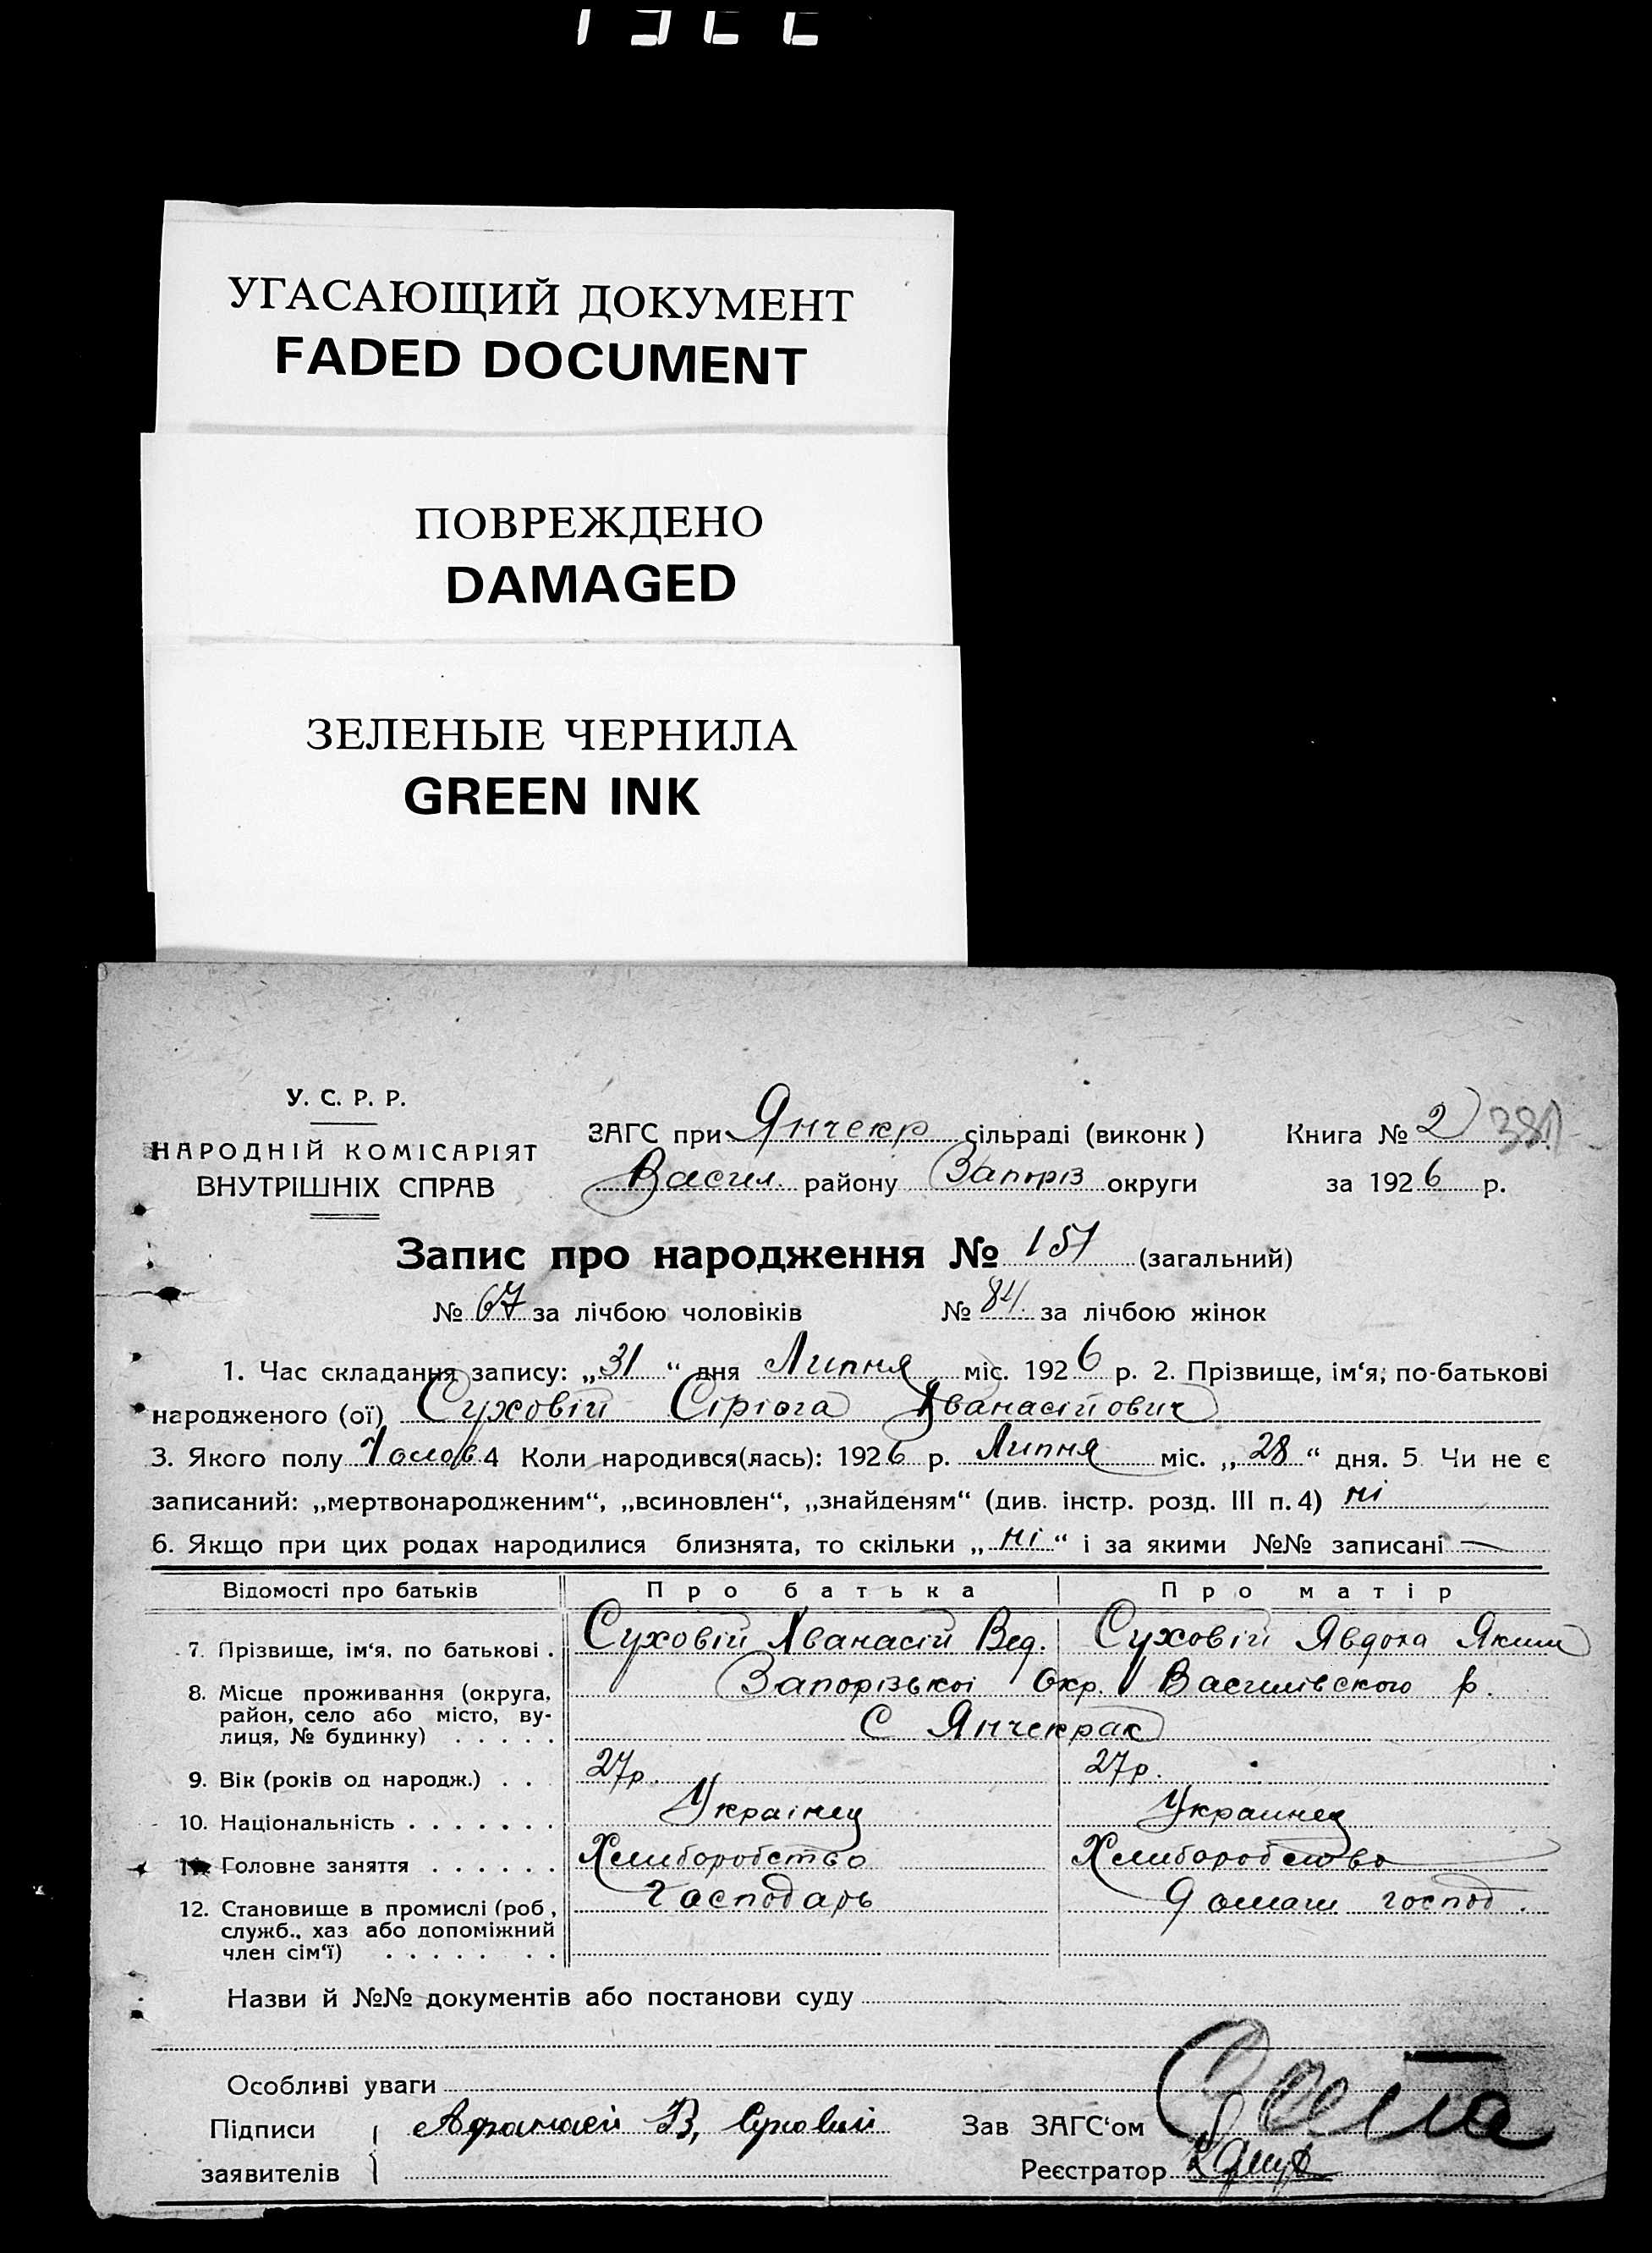 УГАСАЮЩИЙ ДОКУМЕНТ
FADED DOCUMENT
ПОВРЕЖДЕНО
DAMAGED
ЗЕЛЕНЫЕ ЧЕРНИЛА
GREEN INK
У. С. Р. Р.
НАРОДНІЙ КОМІСАРІЯТ
ВНУТРІШНІХ СПРАВ
ЗАГС при Янчекр сільраді (виконк) Книга № 2 381
Васил. району Запоріз округи за 1926 р.
Запис про народження № 151 (загальний)
№ 67 за лічбою чоловіків № 84. за лічбою жінок
1. Час складання запису: „31“ дня Липня міс. 1926 р. 2. Прізвище, ім‘я, по-батькові
народженого (ої) Суховій Сірьога Аванасійович
3. Якого полу Чолов 4 Коли народився(лась): 1926 р. Липня міс. „28“ дня. 5 Чи не є
записаний: „мертвонародженим“, „всиновлен“, „знайденям“ (див. інстр. розд. III п. 4) ні
6. Якщо при цих родах народилися близнята, то скільки „ні“ і за якими №№ записані —
Відомості про батьків Про батька Про матір
7. Прізвище, ім‘я, по батькові . Суховій Аванасій Вед. Суховій Явдоха Яким
8. Місце проживання (округа, район, село або місто, ву-лиця, № будинку) . . . . . Запорізькоі Окр. Василівского р.
С Янчекрак
9. Вік (років од народж.) . . . 27р. 27р.
10. Національність . . . . . . . Украінец Украинец
11. Головне заняття . . . . . . Хлиборобство Хлиборобство
12. Становище в промислі (роб, служб., хаз або допоміжний член сім‘ї) . . . . . . . Господарь Домаш господ.
Назви й №№ документів або постанови суду
Особливі уваги
Підписи Афанасий В, Суховий Зав ЗАГС‘ом
заявителів Реєстратор